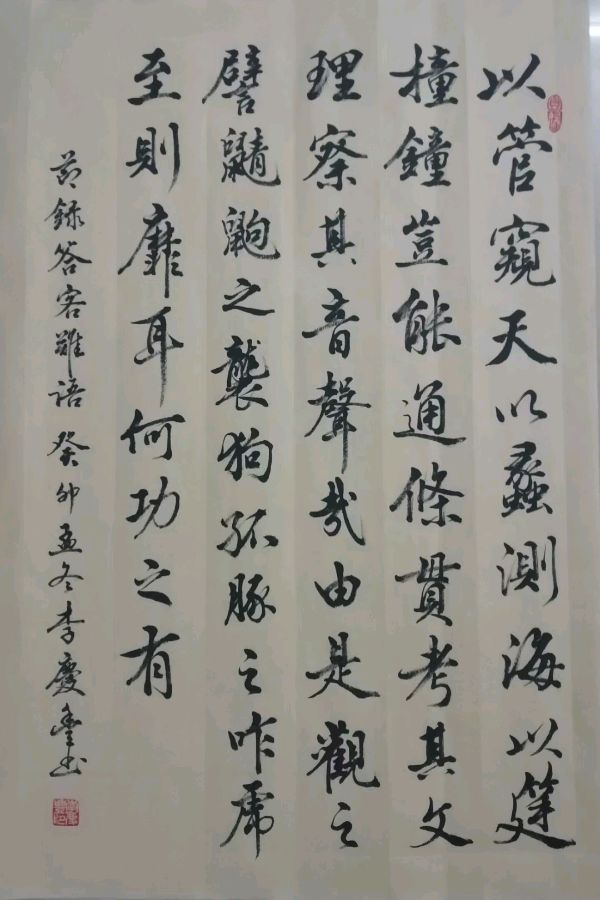 以管窺天以蠡測海以筳
撞鐘豈能通條貫考其文
理察其音聲哉由是觀之
譬鼱鼩之襲狗孤豚之咋虎
至則靡耳何功之有
節錄答客難語 癸卯孟冬李慶豐书